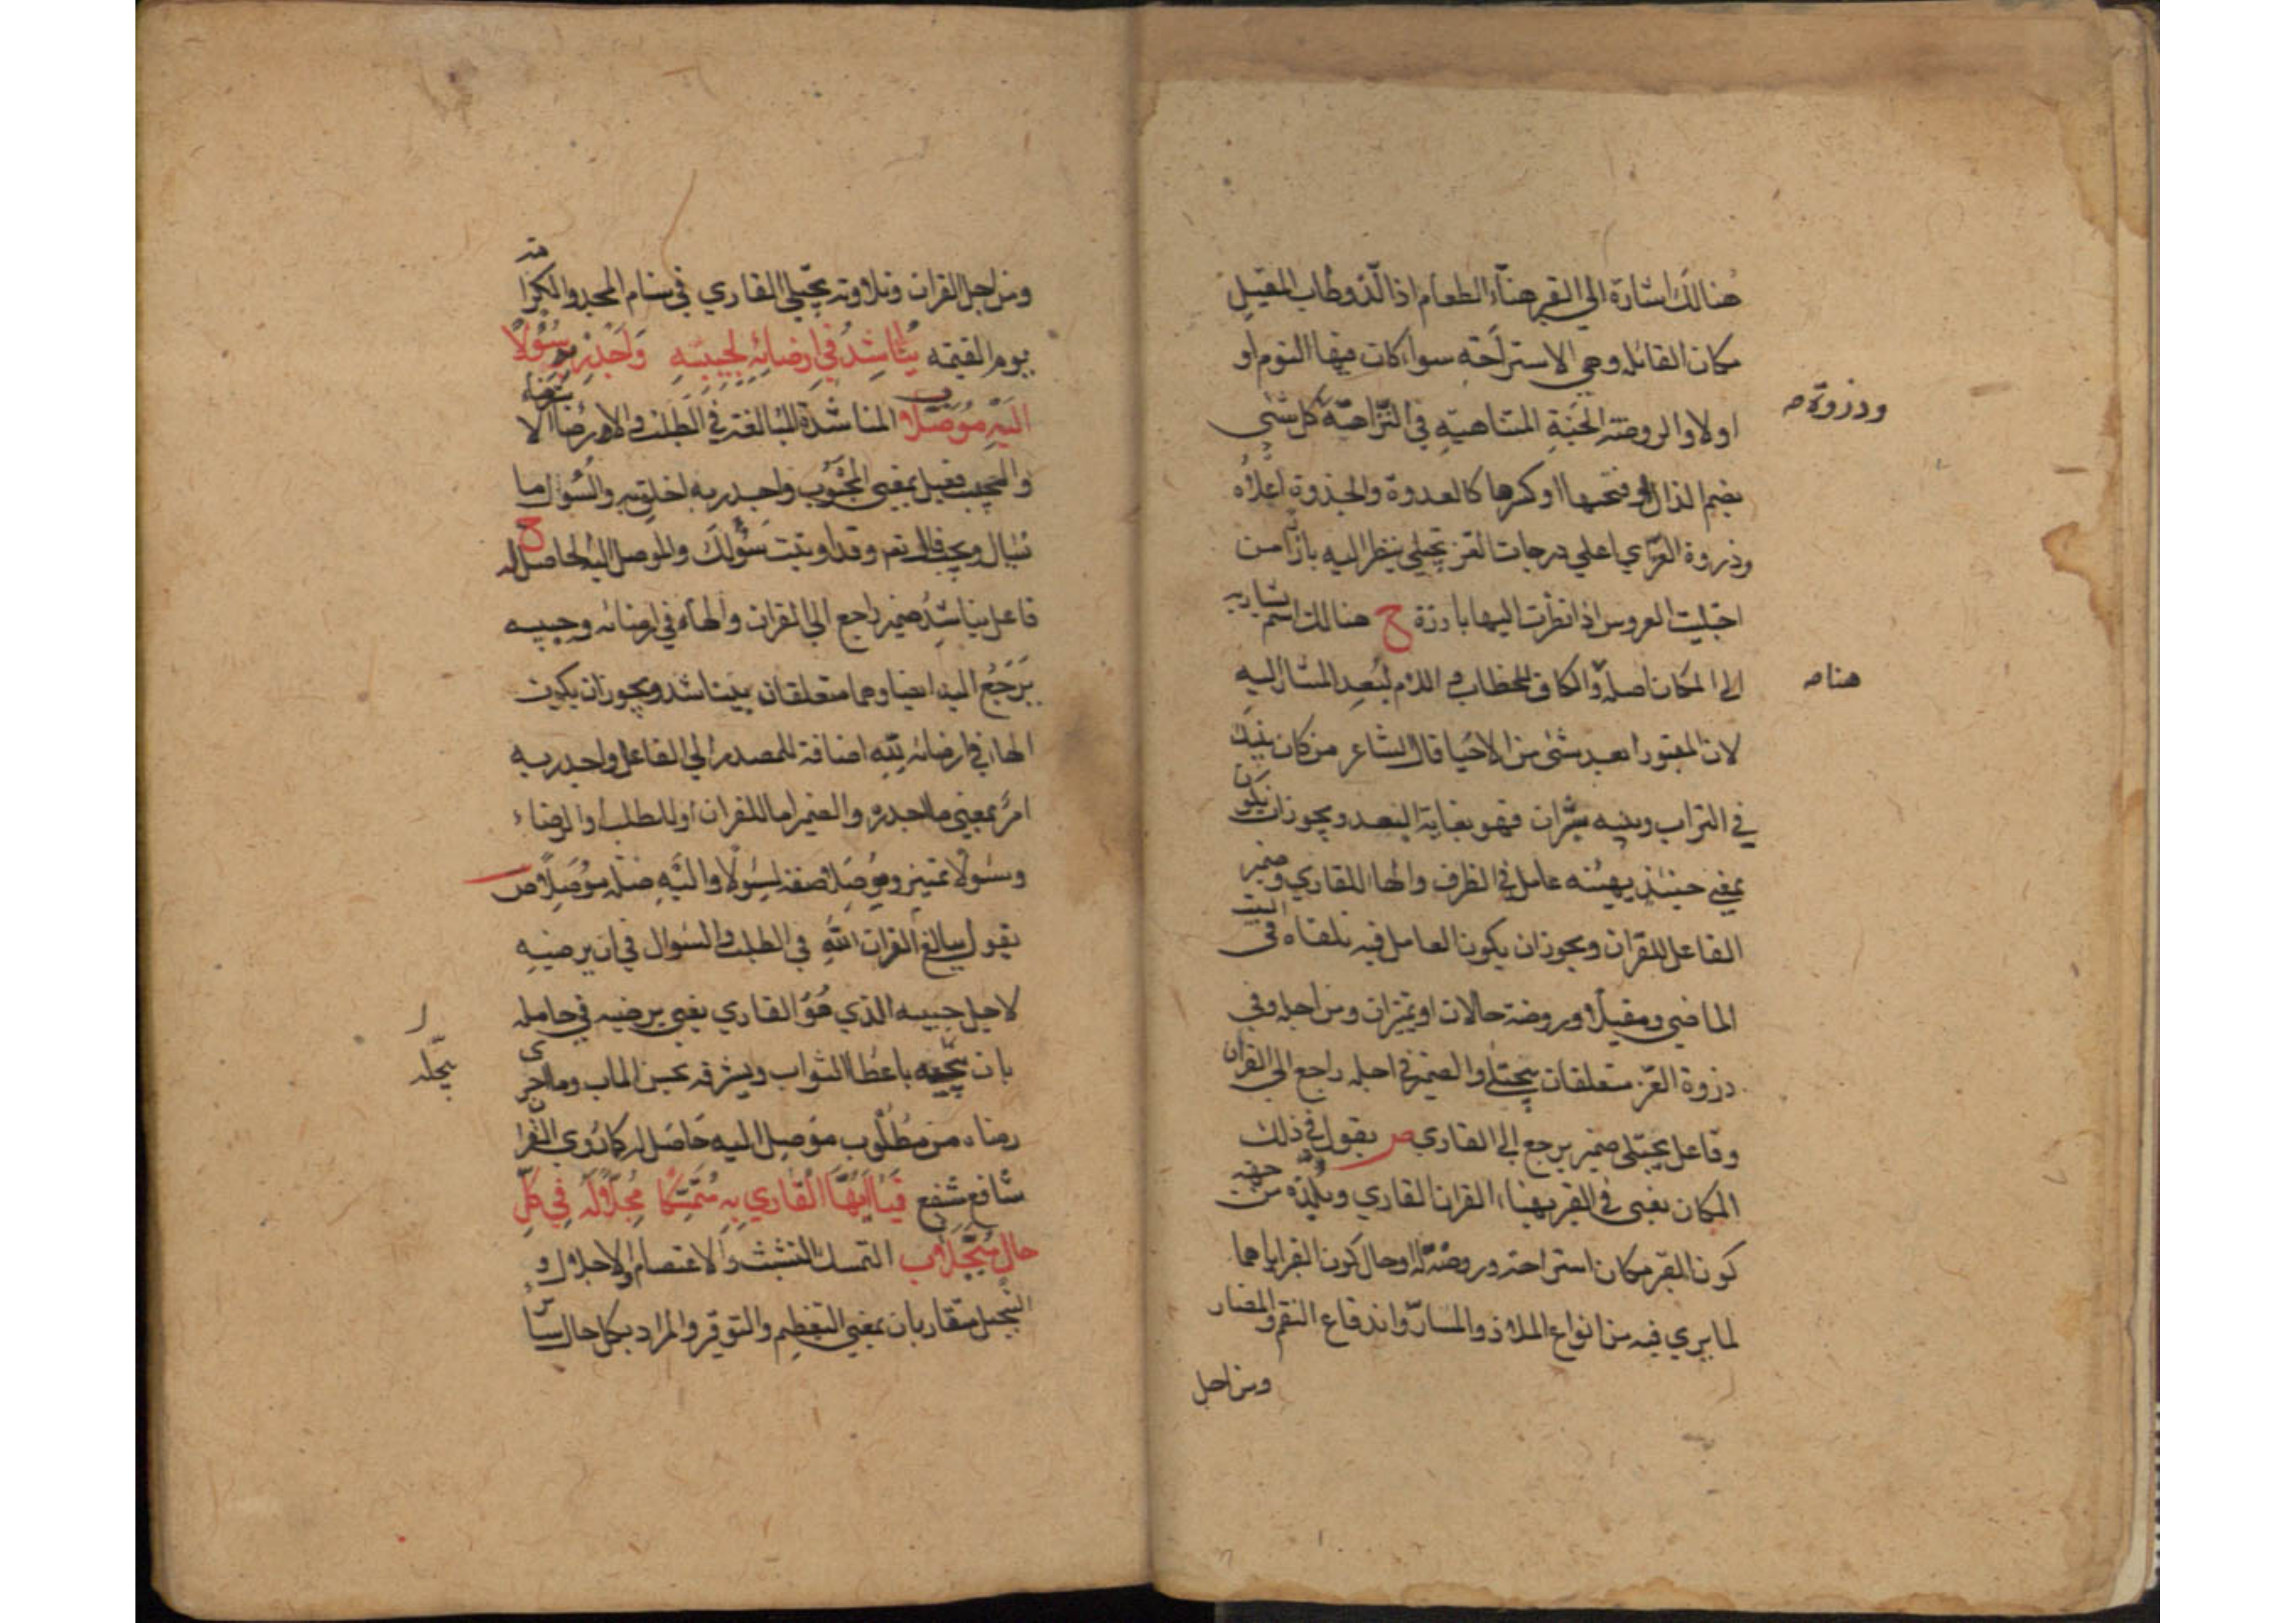 هنالك اشارة الي القبر هناء الطعام اذا لذ وطاب المقيل
مكان القائلة وهي الاستراحة سواء كانت فيها النوم او
اولا والروضة الجنة المتناهية في النزاهة كل شئ
وذروة صه
بضم الذال وفتحها او كسرها كالعدوة والجذوة اعلاه
وذروة العز اي اعلي درجات العز يجتلي ينظر اليه بارزا من
اجتليت العروس اذا نظرت اليها بارزة ح هنالك اسم يشار به
الي المكان اصله والكاف للخطاب و اللام لبعد المشار اليه
هنا صه
لان المقبور ابعد شئ من الاحيا قال الشاعر من كان بينك
في التراب وبينه شبران فهو بغاية البعد ويجوز ان يكون
بمعني حينئذ يهنئه عامل في الظرف والها للقاري وضمير
الفاعل للقران ويجوز ان يكون العامل فيه تلقاه في البيت
الماضي ومقيلا وروضة حالان او تميزان ومن اجله وفي
ذروة العز متعلقان بيجتلي والضمير في اجله راجع الي القران
وفاعل يجتلي ضمير يرجع الي القاري ص يقول في ذلك
المكان يعني في القبر يهناء القران القاري ويلذه من جهة
كون القبر مكان استراحة وروضة له او حال كون القبر اياهما
لما يري فيه من انواع الملاذ والمسار واندفاع النقم والمضار
ومن اجل
ومن اجل القران وتلاوته يجتلي القاري في سنام المجد والكرامة
يوم القيمة يناشد في ارضائه لحبيبه واجدر به سؤلا
اليه موصلا ب المناشدة المبالغة في الطلب و الارضاء
والحبيب فعيل بمعني المحبوب واجدر به اخلق به والسؤل ما
يسال ويجب قال تعه وقد اوتيت سؤلك والموصل اليه الحاصل له ح
فاعل يناشد ضمير راجع الي القران والهاء في ارضائه وحبيبه
يرجع اليه ايضا وهما متعلقان بيناشد ويجوز ان يكون
الهاء في ارضائه لله اضافة للمصدر الي الفاعل واجدر به
امر بمعني ما اجدره والضمير اما للقران او للطلب او الرضاء
وسؤلا تمييز وموصلا صفة لسؤلا واليه صلة موصلا ص
يقول يبالغ القران الله في الطلب والسؤال في ان يرضيه
لاجل حبيبه الذي هو القاري يعني يرضيه في حامله
بان باعطا الثواب ويشرفه بحسن الماب وما اجدر
يبجله
رضاء من مطلوب موصل اليه حاصل له كما روي القران
شافع شفع فيا ايها القاري به متمسكا مجلا له في كل
حال مبجلا ب التمسك التشبث والاعتصام والاجلال و
التبجيل متقاربان بمعني التعظيم والتوقير والمراد بكل حال